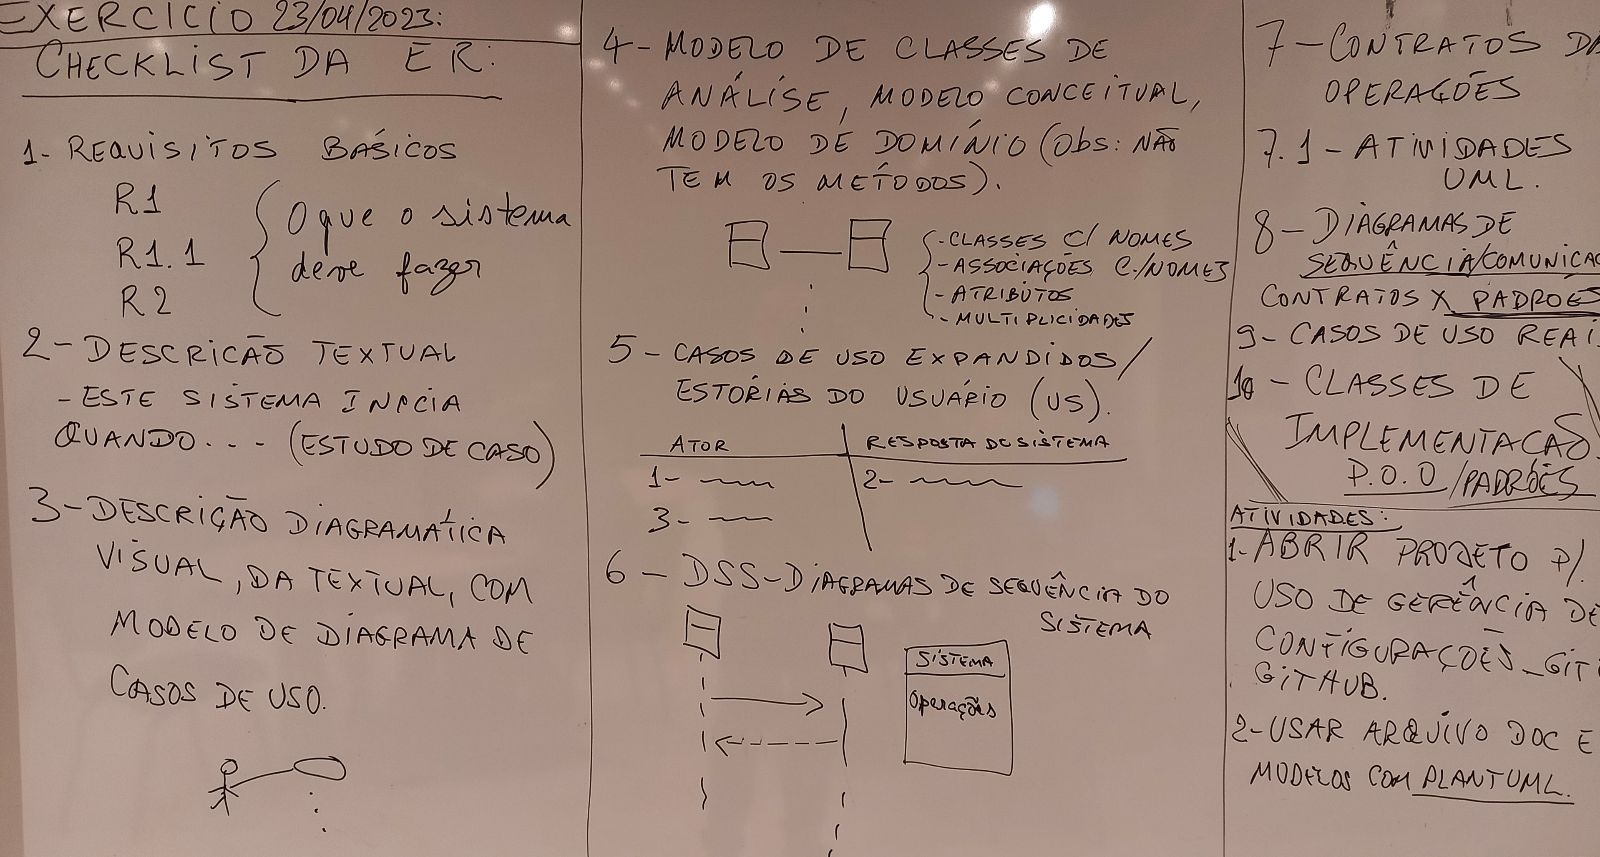 EXERCÍCIO 23/04/2023:
CHECKLIST DA ER:
1- REQUISITOS BÁSICOS
R1
R1.1
R2
O que o sistema
deve fazer
2- DESCRIÇÃO TEXTUAL
- ESTE SISTEMA INICIA
QUANDO... (ESTUDO DE CASO)
3- DESCRIÇÃO DIAGRAMÁTICA
VISUAL, DA TEXTUAL, COM
MODELO DE DIAGRAMA DE
CASOS DE USO.
4- MODELO DE CLASSES DE
ANÁLISE, MODELO CONCEITUAL,
MODELO DE DOMÍNIO (Obs: NÃO
TEM OS MÉTODOS).
- CLASSES C/ NOMES
- ASSOCIAÇÕES C/NOMES
- ATRIBUTOS
- MULTIPLICIDADES
5- CASOS DE USO EXPANDIDOS/
ESTÓRIAS DO USUÁRIO (US).
ATOR RESPOSTA DO SISTEMA
1- 2-
3-
6- DSS-DIAGRAMAS DE SEQUÊNCIA DO
SISTEMA
SISTEMA
Operações
7- CONTRATOS DA
OPERAÇÕES
7.1- ATIVIDADES
UML.
8- DIAGRAMAS DE
SEQUÊNCIA/COMUNICAÇ
CONTRATOS X PADRÕES
9- CASOS DE USO REAI
10- CLASSES DE
IMPLEMENTAÇÃO
P.O.O/PADRÕES
ATIVIDADES:
1- ABRIR PROJETO P/
USO DE GERÊNCIA DE
CONFIGURAÇÕES_GIT
GITHUB.
2- USAR ARQUIVO DOC E
MODELOS COM PLANTUML.